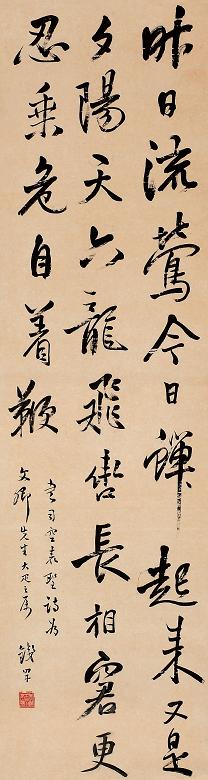 昨日流莺今日蝉起来又是
夕陽天六龍飛轡長相窘更
忍乘危自着鞭
書司空表聖詩為
文卿先生大兄之属